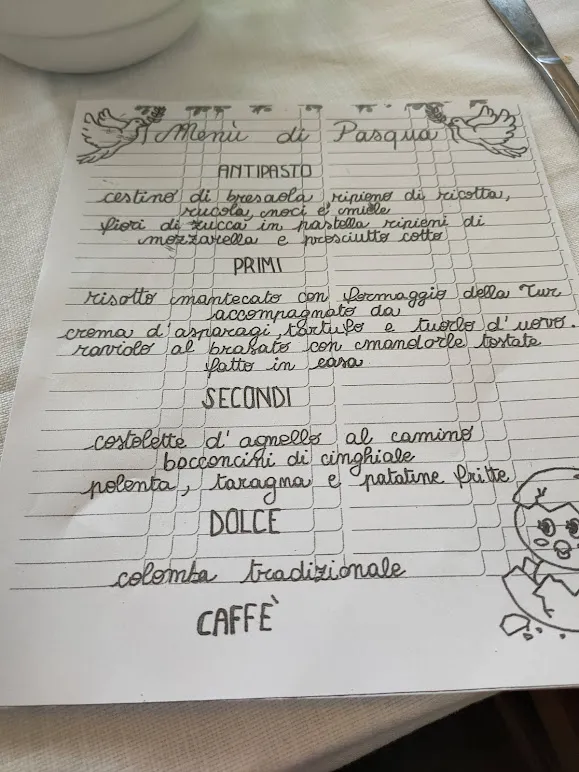 Menù di Pasqua
ANTIPASTO
cestino di bresaola ripieno di ricotta,
rucola, noci e miele
fiori di zucca in pastella ripieni di
mozzarella e prosciutto cotto
PRIMI
risotto mantecato con formaggio della Tur
accompagnato da
crema d'asparagi, tartufo e tuorlo d'uovo.
raviolo al brasato con mandorle tostate
fatto in casa
SECONDI
costolette d'agnello al camino
bocconcini di cinghiale
polenta, taragna e patatine fritte
DOLCE
colomba tradizionale
CAFFÈ